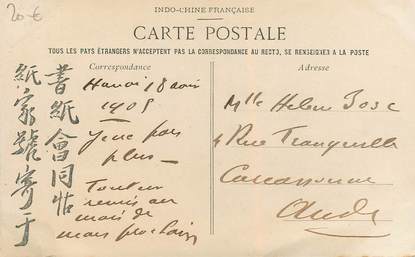 20 €
INDO-CHINE FRANÇAISE
CARTE POSTALE
TOUS LES PAYS ÉTRANGERS N'ACCEPTENT PAS LA CORRESPONDANCE AU RECTO, SE RENSEIGNER A LA POSTE
Correspondance
Adresse
書紙會同帖
紙家號寄于
Hanoi 18 aout
1905
plus
Tout
remis au
mois de
mars prochain
Mlle Helen Bosc
4 Rue Tranquille
Carcassonne
Aude